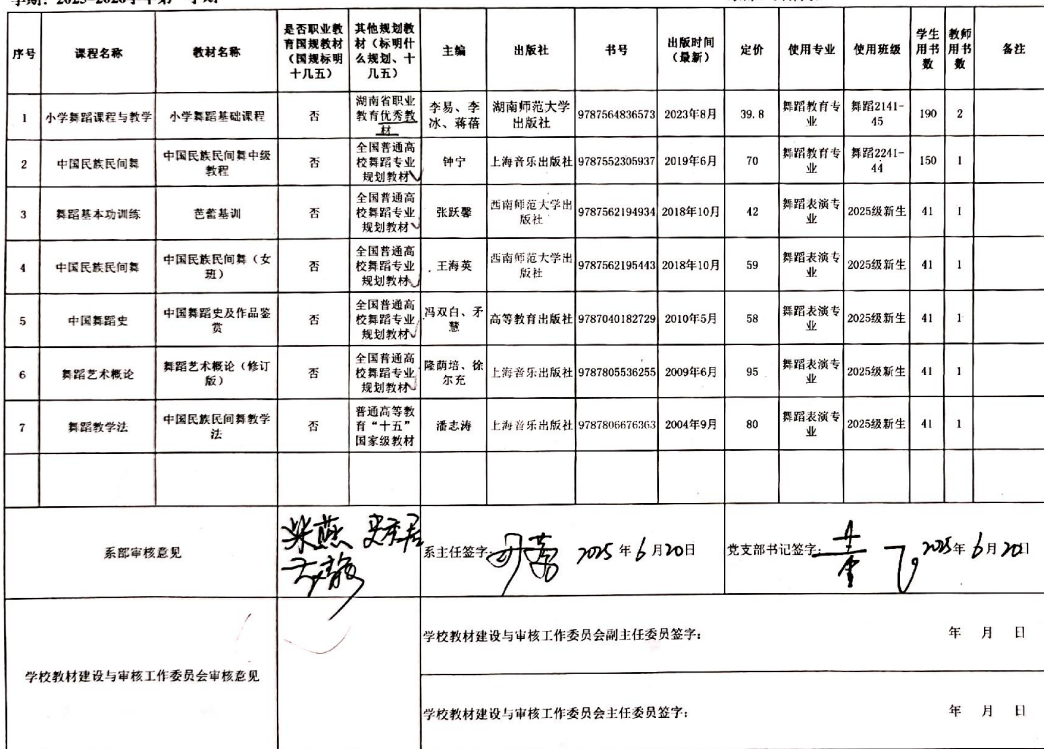 序号 课程名称 教材名称 是否职业教育国规教材（国规标明十几五） 其他规划教材（标明什么规划、十几五） 主编 出版社 书号 出版时间（最新） 定价 使用专业 使用班级 学生用书数 教师用书数 备注
1 小学舞蹈课程与教学 小学舞蹈基础课程 否 湖南省职业教育优秀教材 李易、李冰、蒋蓓 湖南师范大学出版社 9787564836573 2023年8月 39.8 舞蹈教育专业 舞蹈2141-45 190 2
2 中国民族民间舞 中国民族民间舞中级教程 否 全国普通高校舞蹈专业规划教材 钟宁 上海音乐出版社 9787552305937 2019年6月 70 舞蹈教育专业 舞蹈2241-44 150 1
3 舞蹈基本功训练 芭蕾基训 否 全国普通高校舞蹈专业规划教材 张跃馨 西南师范大学出版社 9787562194934 2018年10月 42 舞蹈表演专业 2025级新生 41 1
4 中国民族民间舞 中国民族民间舞（女班） 否 全国普通高校舞蹈专业规划教材 王海英 西南师范大学出版社 9787562195443 2018年10月 59 舞蹈表演专业 2025级新生 41 1
5 中国舞蹈史 中国舞蹈史及作品鉴赏 否 全国普通高校舞蹈专业规划教材 冯双白、茅慧 高等教育出版社 9787040182729 2010年5月 58 舞蹈表演专业 2025级新生 41 1
6 舞蹈艺术概论 舞蹈艺术概论（修订版） 否 全国普通高校舞蹈专业规划教材 隆荫培、徐尔充 上海音乐出版社 9787805536255 2009年6月 95 舞蹈表演专业 2025级新生 41 1
7 舞蹈教学法 中国民族民间舞教学法 否 普通高等教育“十五”国家级教材 潘志涛 上海音乐出版社 9787806676363 2004年9月 80 舞蹈表演专业 2025级新生 41 1
系部审核意见 系主任签字： 2025年6月20日 党支部书记签字： 2025年6月20日
学校教材建设与审核工作委员会副主任委员签字： 年 月 日
学校教材建设与审核工作委员会审核意见
学校教材建设与审核工作委员会主任委员签字： 年 月 日